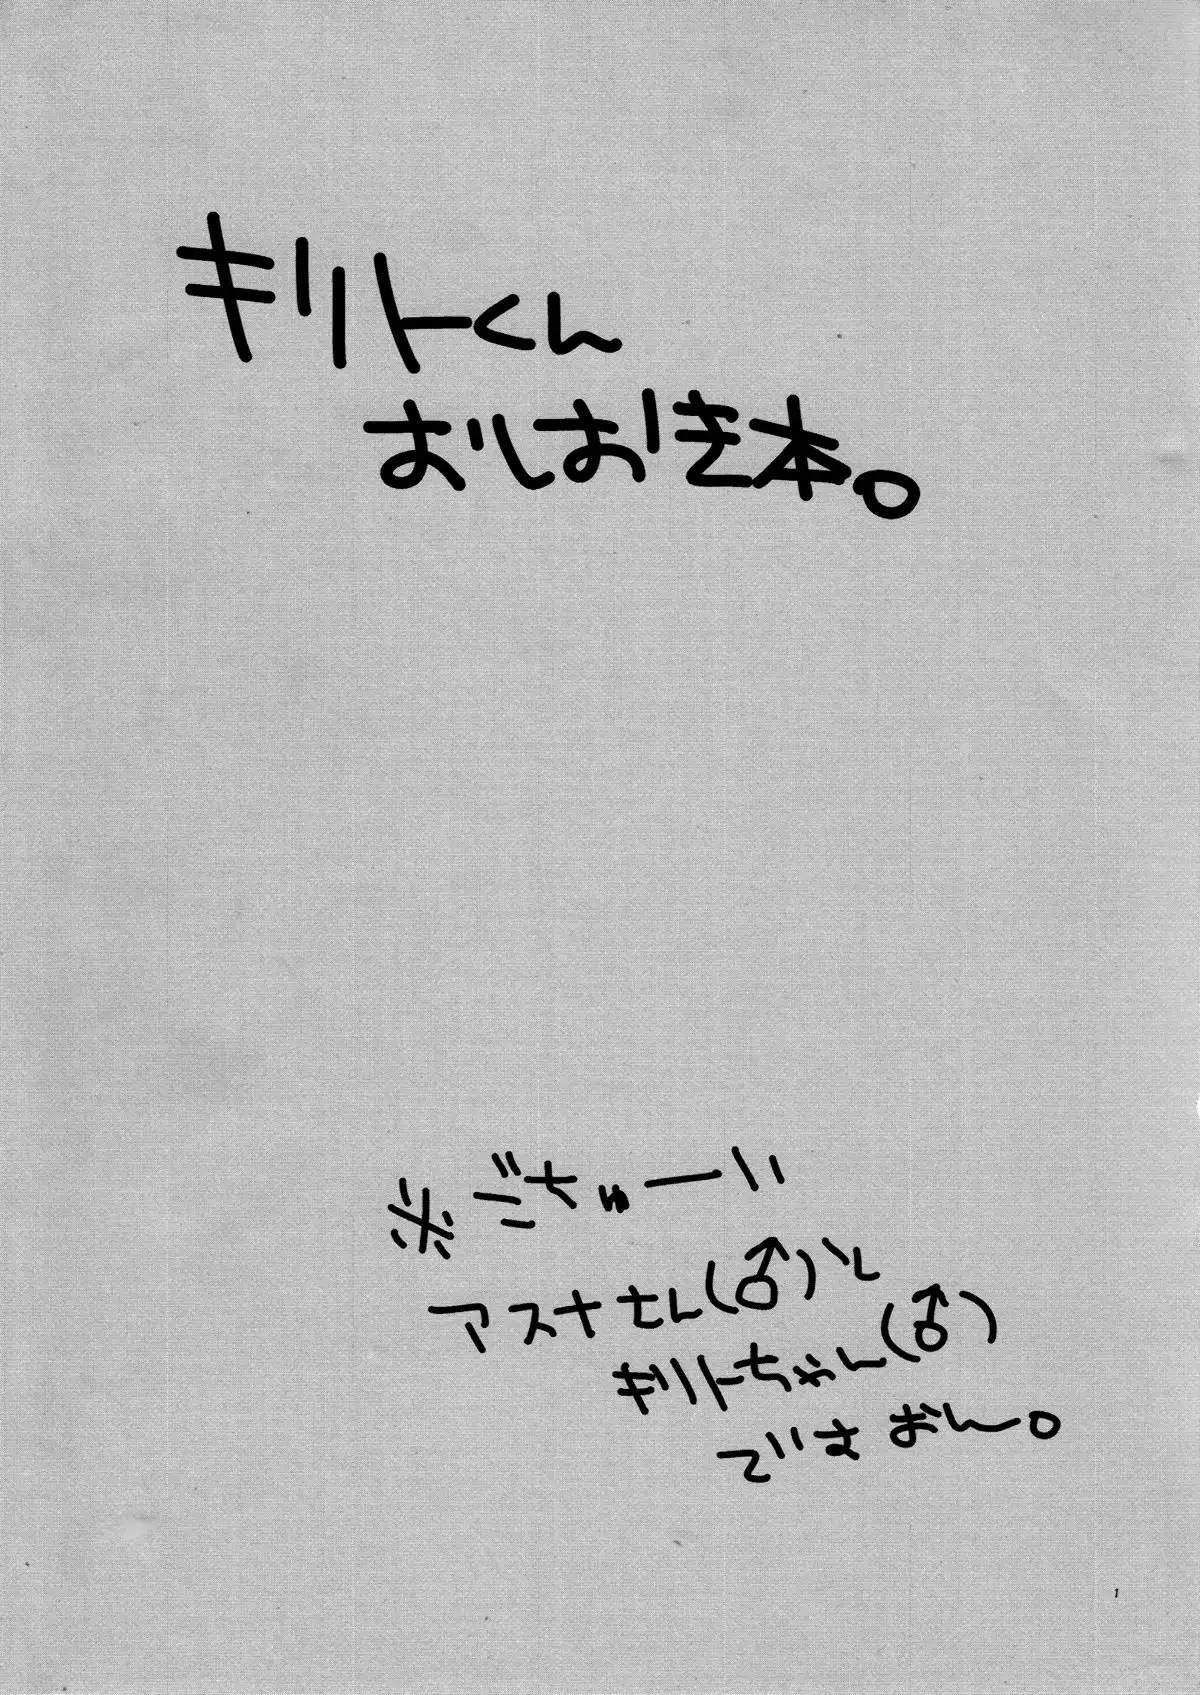 キリトくん
おしおき本。
※ごちゅーい
アスナさん(♂)と
キリトちゃん(♂)
でいきません。
1